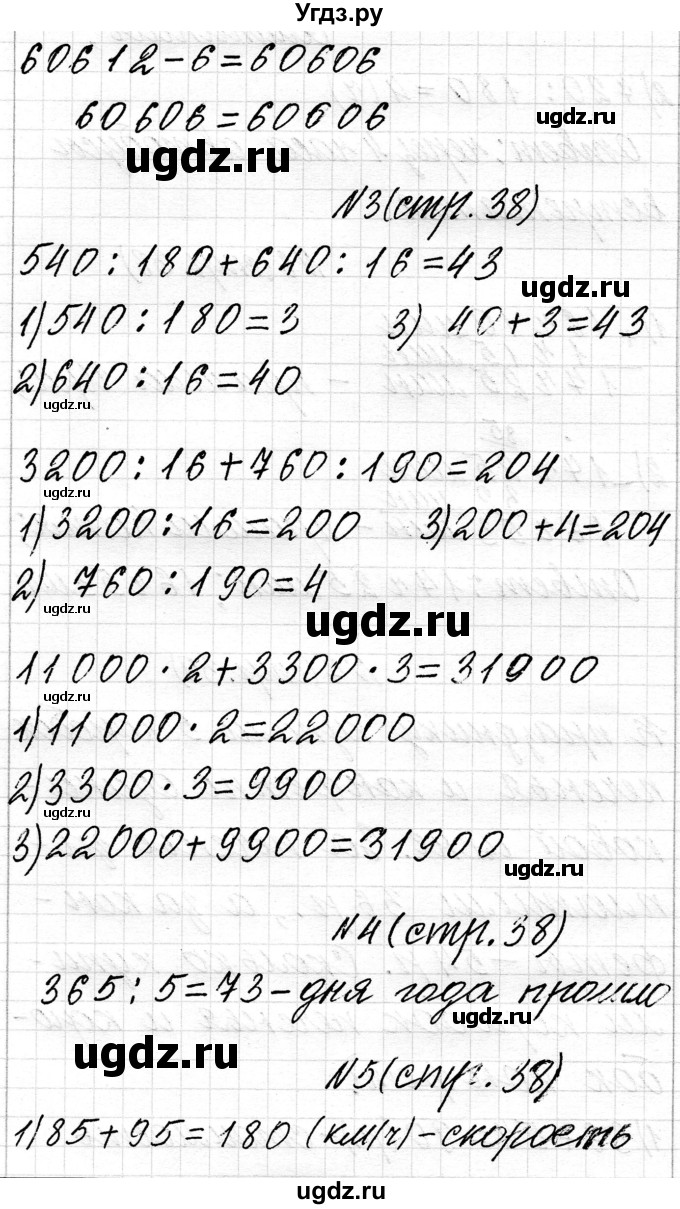 Угдз.ру
60612-6=60606
60606=60606
ugdz.ru
ugdz.ru
№3(стр. 38)
540:180+640:16=43
ugdz.ru
1)540:180=3 3) 40+3=43
2)640:16=40
ugdz.ru
3200:16+760:190=204
ugdz.ru
1)3200:16=200 3)200+4=204
2) 760:190=4
ugdz.ru
ugdz.ru
11000·2+3300·3=31900
ugdz.ru
1)11000·2=22000
2)3300·3=9900
ugdz.ru
3)22000+9900=31900
ugdz.ru
№4(стр.38)
365:5=73-дня года прошло
ugdz.ru
ugdz.ru
№5(стр. 38)
1)85+95=180 (км/ч)-скорость
ugdz.ru